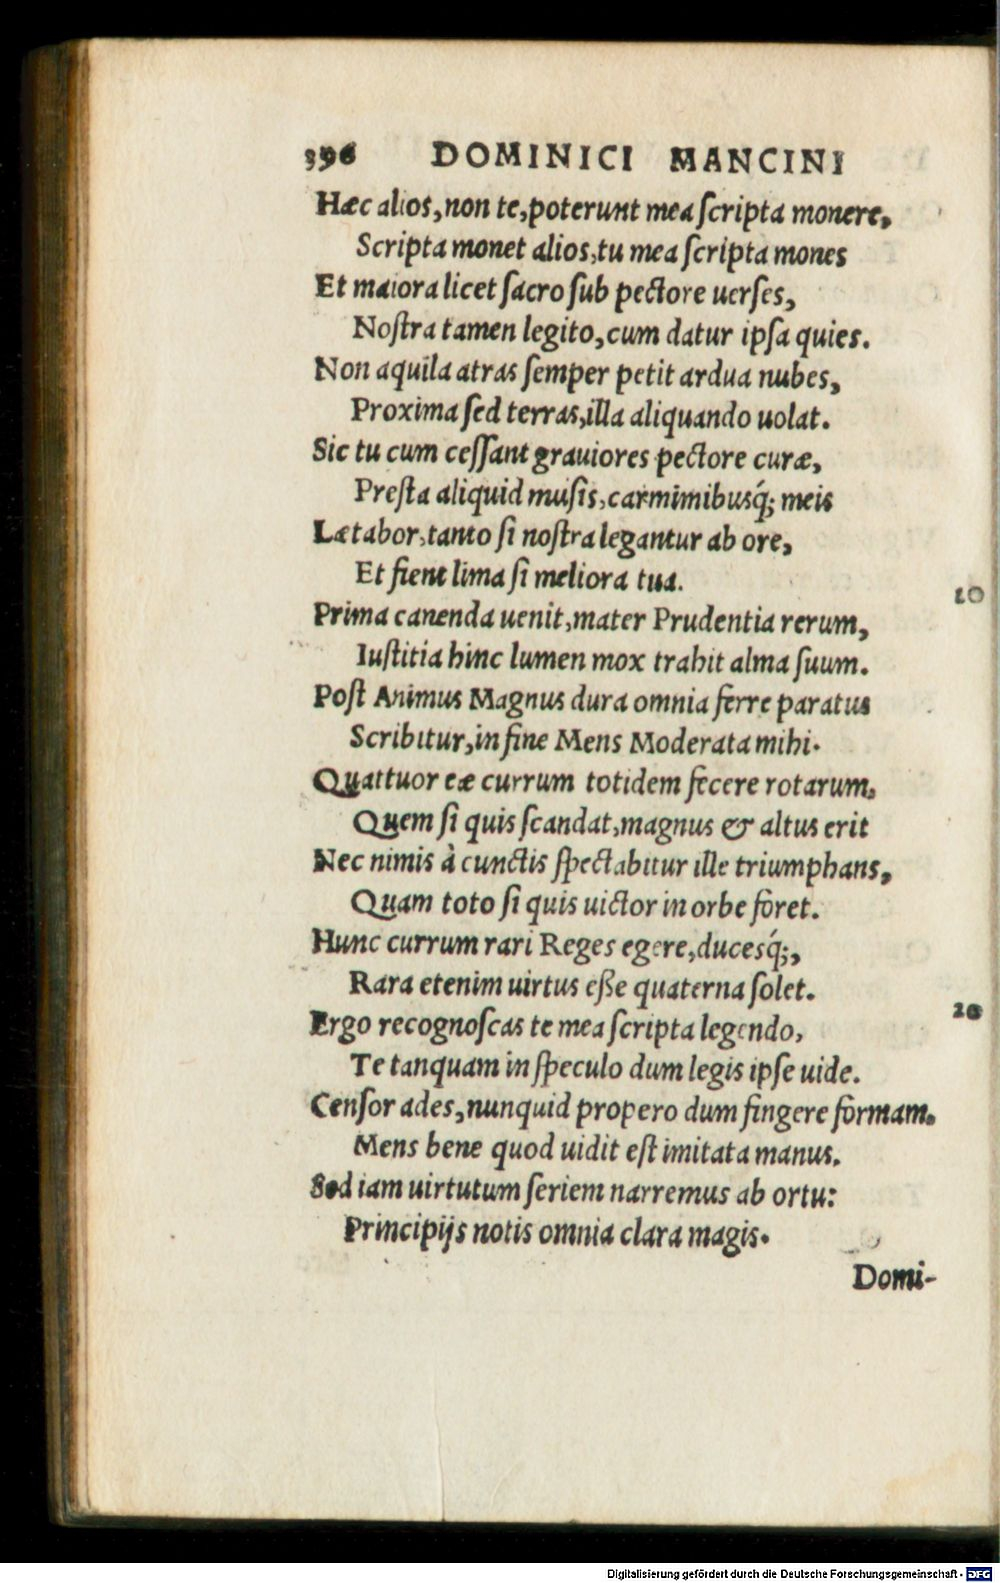 396 DOMINICI MANCINI
Hæc alios, non te, poterunt mea ſcripta monere,
Scripta monet alios, tu mea ſcripta mones
Et maiora licet ſacro ſub pectore uerſes,
Noſtra tamen legito, cum datur ipſa quies.
Non aquila atras ſemper petit ardua nubes,
Proxima ſed terras, illa aliquando uolat.
Sic tu cum ceſſant grauiores pectore curæ,
Preſta aliquid muſis, carmimibusq́; meis
Lætabor, tanto ſi noſtra legantur ab ore,
Et fient lima ſi meliora tua.
10
Prima canenda uenit, mater Prudentia rerum,
Iuſtitia hinc lumen mox trahit alma ſuum.
Poſt Animus Magnus dura omnia ferre paratus
Scribitur, in fine Mens Moderata mihi.
Quattuor eæ currum totidem fecere rotarum.
Quem ſi quis ſcandat, magnus & altus erit
Nec nimis à cunctis ſpectabitur ille triumphans,
Quam toto ſi quis uictor in orbe foret.
Hunc currum rari Reges egere, ducesq́;,
Rara etenim uirtus eße quaterna ſolet.
20
Ergo recognoſcas te mea ſcripta legendo,
Te tanquam in ſpeculo dum legis ipſe uide.
Cenſor ades, nunquid propero dum fingere formam.
Mens bene quod uidit eſt imitata manus.
Sed iam uirtutum ſeriem narremus ab ortu:
Principijs notis omnia clara magis.
Domi-
Digitalisierung gefördert durch die Deutsche Forschungsgemeinschaft - DFG